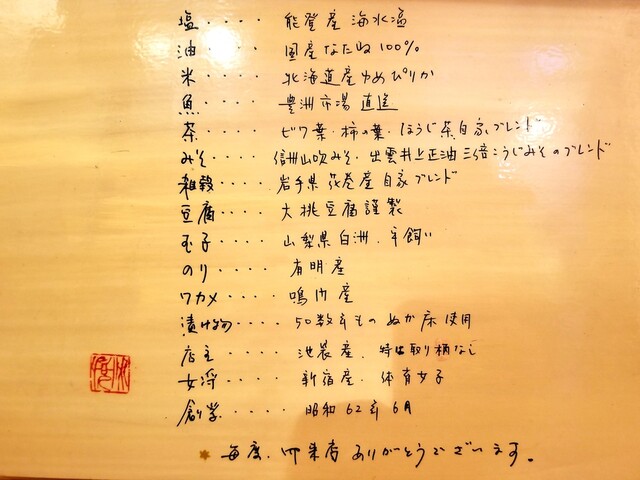 塩・・・・ 能登産 海水塩
油・・・・ 国産なたね100%
米・・・・ 北海道産ゆめぴりか
魚・・・・ 豊洲市場 直送
茶・・・・ ビワ葉・柿の葉・ほうじ茶自家ブレンド
みそ・・・・ 信州山吹みそ・出雲井上正油三倍こうじみそのブレンド
雑穀・・・・ 岩手県花巻産自家ブレンド
豆腐・・・・ 大桃豆腐謹製
玉子・・・・ 山梨県白洲、平飼い
のり・・・・ 有明産
ワカメ・・・・ 鳴門産
漬け物・・・・ 50数年もの ぬか床使用
店主・・・・ 池袋産、特に取り柄なし
女将・・・・ 新宿産、体育女子
創業・・・・ 昭和62年6月
毎度、御来店ありがとうございます。